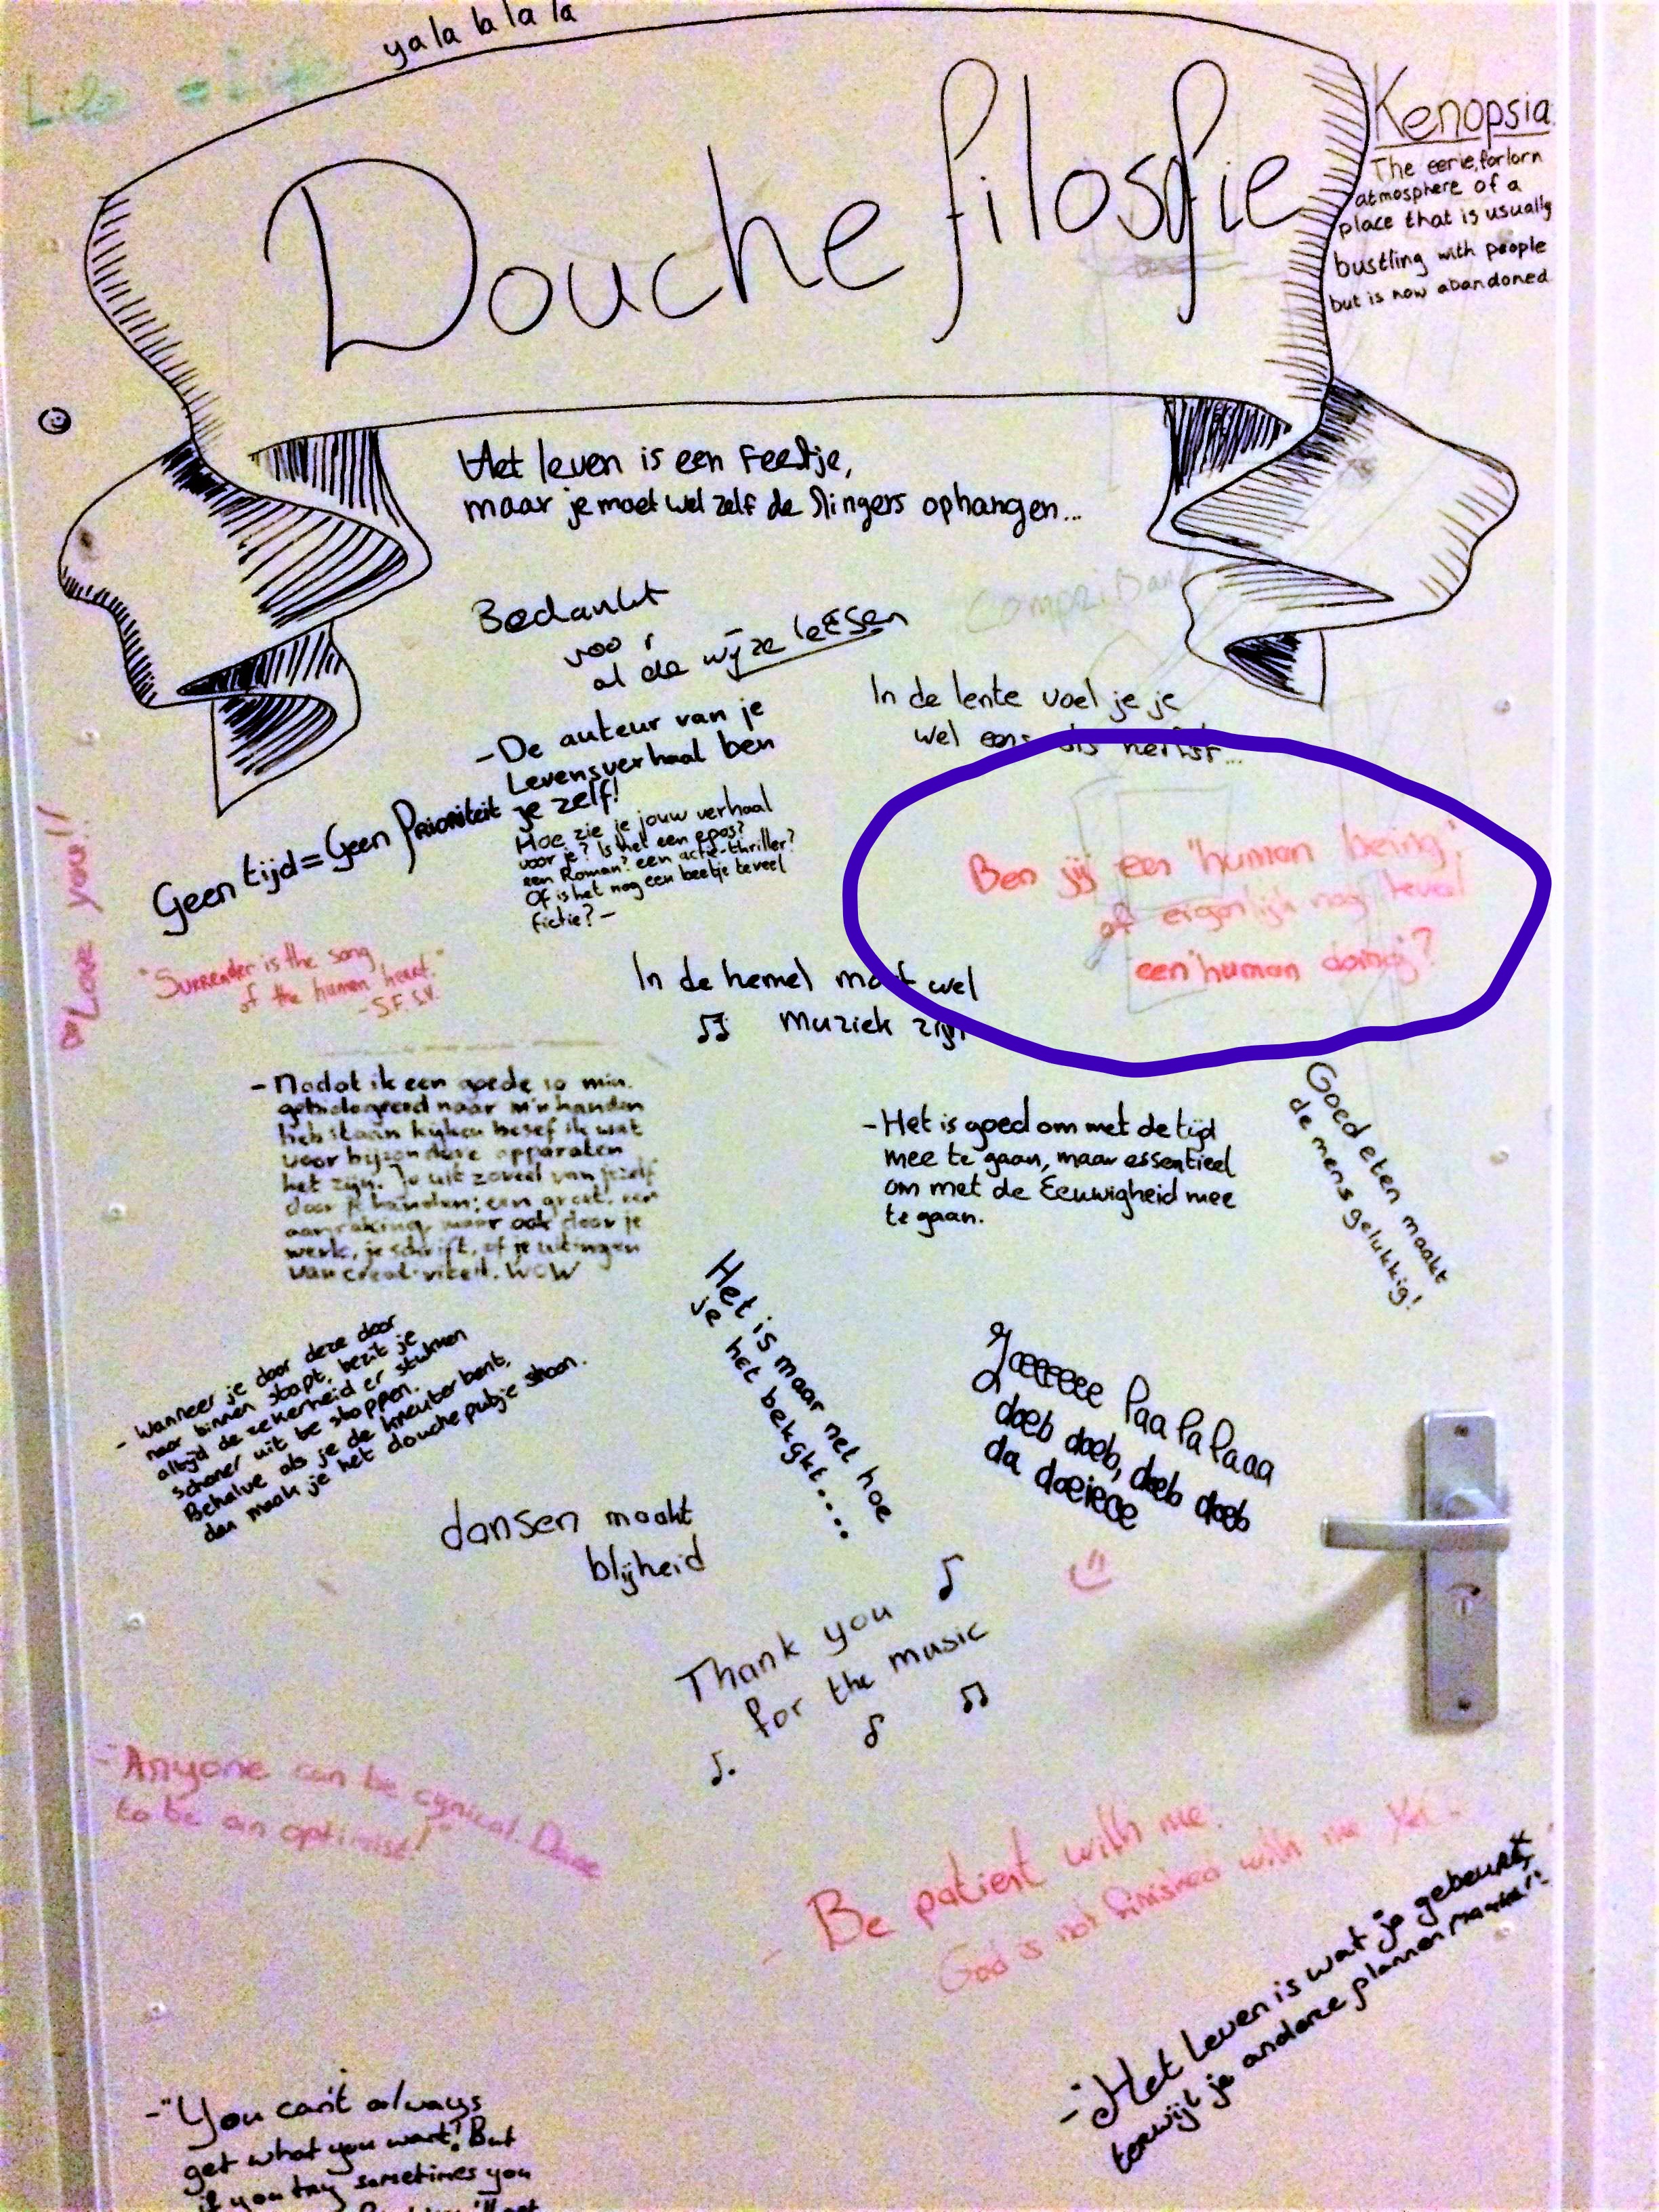 ya la la la la
Life = Life
Douche filosofie
Kenopsia
The eerie, forlorn
atmosphere of a
place that is usually
bustling with people
but is now abandoned
Het leven is een feestje,
maar je moet wel zelf de slingers ophangen...
Bedankt
voor
al de wijze lessen
In de lente voel je je
wel eens als herfst...
- De auteur van je
Levensverhaal ben
je zelf!
Hoe zie je jouw verhaal
voor je? Is het een epos?
een Roman? een actie-thriller?
Of is het nog een beetje teveel
fictie? -
Geen tijd = Geen Prioriteit
Love you!!
Ben jij een 'human being'
of eigenlijk nog teveel
een 'human doing'?
"Surrender is the song
of the human heart."
- S.F.S.V.
In de hemel moet wel
muziek zijn
- Nadat ik een goede 10 min.
gebiologeerd naar m'n handen
heb staan kijken besef ik wat
voor bijzondere apparaten
het zijn. Je uit zoveel van jezelf
door je handen; een groet, een
aanraking, maar ook door je
werk, je schrift, of je uitingen
van creativiteit. WOW
- Het is goed om met de tijd
mee te gaan, maar essentieel
om met de Eeuwigheid mee
te gaan.
Goed eten maakt
de mens gelukkig!
- Wanneer je door deze deur
naar binnen stapt, bezit je
altijd de zekerheid er
schoner uit te stappen.
Behalve als je de kneuter bent,
dan maak je het doucheputje shoon.
Het is maar net hoe
je het bekijkt....
Joeeeeee laa la laaa
doeb doeb, doeb doeb
da doeieee
dansen maakt
blijheid
Thank you
for the music
- "Anyone can be cynical. Dare
to be an optimist!"
- Be patient with me.
God is not finished with me yet -
- "Het leven is wat je gebeurt,
terwijl je andere plannen maakt"-
- "You can't always
get what you want! But
if you try sometimes you